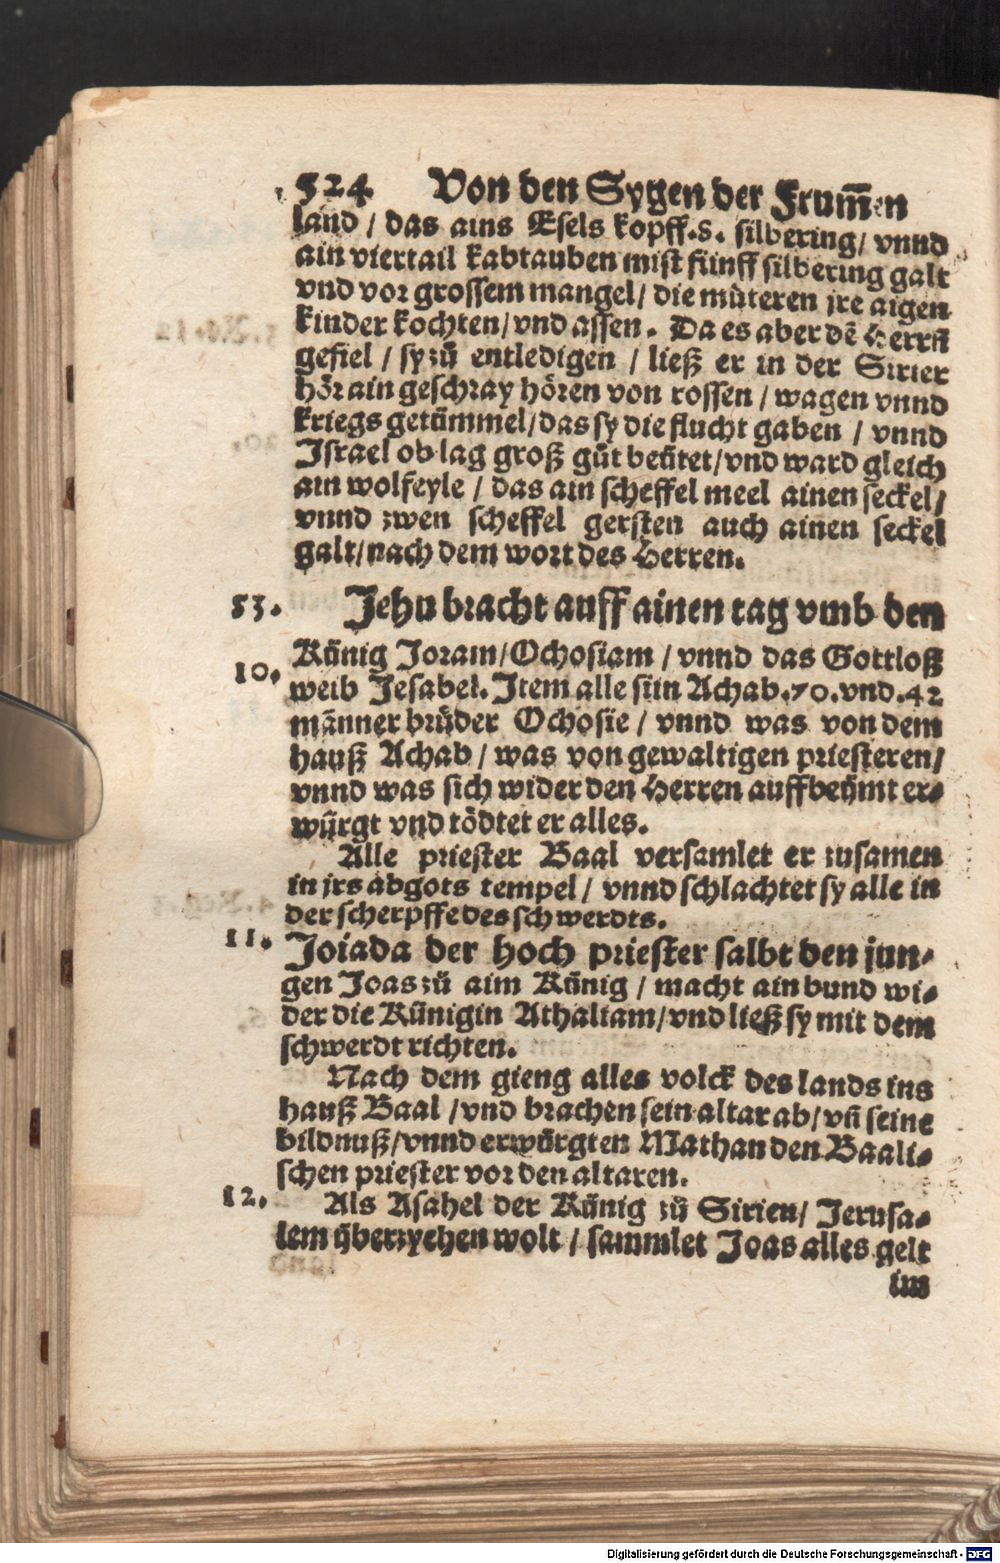 524 Von den Sygen der Frum̅en
land / das ains Esels kopff.8. silbering/ vnnd
ain viertail kabtauben mist fünff silbering galt
vnd vor grossem mangel/ die mů̈teren jre aigen
kinder kochten/vnd assen. Da es aber dē Herrn̄
gefiel / sy zů entledigen / ließ er in der Sirier
hör ain geschray hören von rossen / wagen vnnd
kriegs getümmel/das sy die flucht gaben / vnnd
Israel ob lag groß gůt beütet/vnd ward gleich
ain wolfeyle / das ain scheffel meel ainen seckel/
vnnd zwen scheffel gersten auch ainen seckel
galt/nach dem wort des Herren.
53. Jehu bracht auff ainen tag vmb den
Künig Joram/Ochosiam / vnnd das Gottloß
10. weib Jesabel. Item alle sün Achab.70.vnd.42
männer brůder Ochosie / vnnd was von dem
hauß Achab / was von gewaltigen priesteren/
vnnd was sich wider den Herren auffbeümt er-
würgt vnd tödtet er alles.
Alle priester Baal versamlet er zusamen
in jrs abgots tempel / vnnd schlachtet sy alle in
der scherpffe des schwerdts.
11. Joiada der hoch priester salbt den jun-
gen Joas zů aim Künig / macht ain bund wi-
der die Künigin Athaliam/vnd ließ sy mit dem
schwerdt richten.
Nach dem gieng alles volck des lands ins
hauß Baal /vnd brachen sein altar ab/vn̄ seine
bildnuß/vnnd erwürgten Mathan den Baali-
schen priester vor den altaren.
12. Als Asahel der Künig zů Sirien/ Jerusa-
lem überzyehen wolt / sammlet Joas alles gelt
im
Digitalisierung gefördert durch die Deutsche Forschungsgemeinschaft - DFG